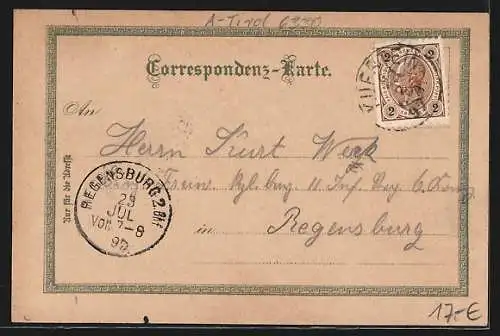 A-Tirol 6330
Correspondenz-Karte.
2 2
KUFSTEIN
2 2
An
Herrn Kurt Werk
11. Inf. Reg.
in Regensburg
Nur für die Adresse
REGENSBURG 2 BHF
23
JUL
VOR. 7-8
17.-€